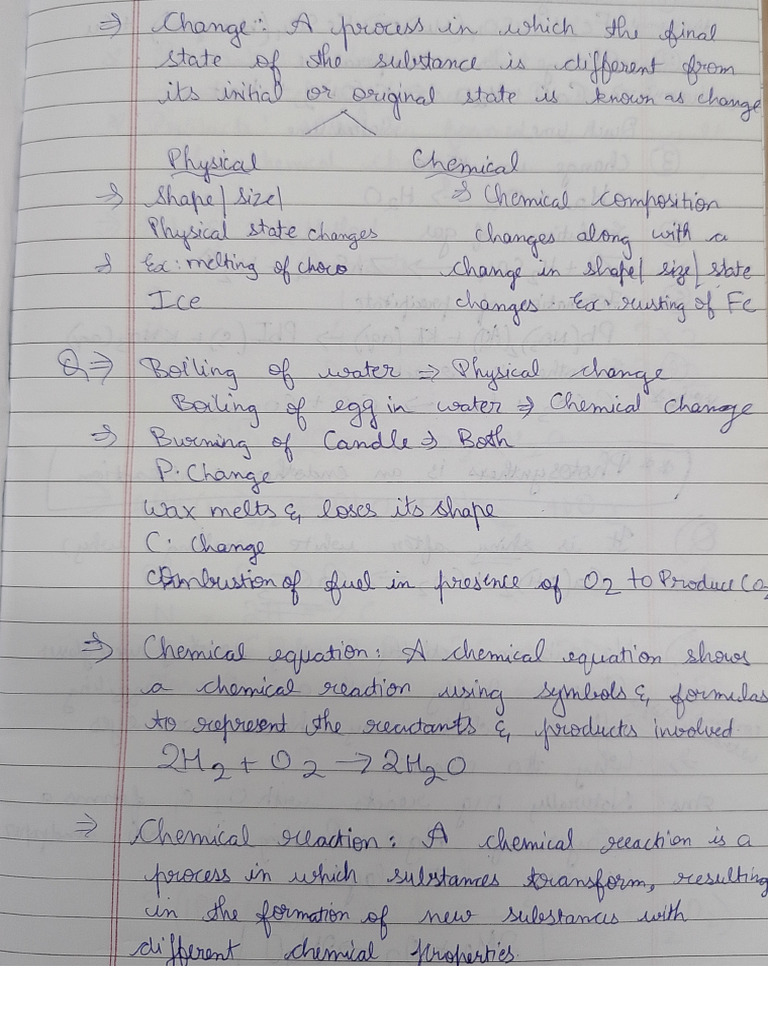 ⇒ Change : A process in which the final
state of the substance is different from
its initial or original state is known as change
Physical Chemical
⇒ Shape / size / ⇒ Chemical composition
Physical state changes changes along with a
⇒ Ex: melting of choco change in shape / size / state
Ice changes. Ex: rusting of Fe
Q ⇒ Boiling of water ⇒ Physical change
Boiling of egg in water ⇒ Chemical Change
⇒ Burning of Candle ⇒ Both
P. Change
Wax melts & loses its shape
C. Change
Combustion of fuel in presence of O2 to Produce CO2
⇒ Chemical equation : A chemical equation shows
a chemical reaction using symbols & formulas
to represent the reactants & products involved
2H2 + O2 → 2H2O
⇒ Chemical reaction : A chemical reaction is a
process in which substances transform, resulting
in the formation of new substances with
different chemical properties.